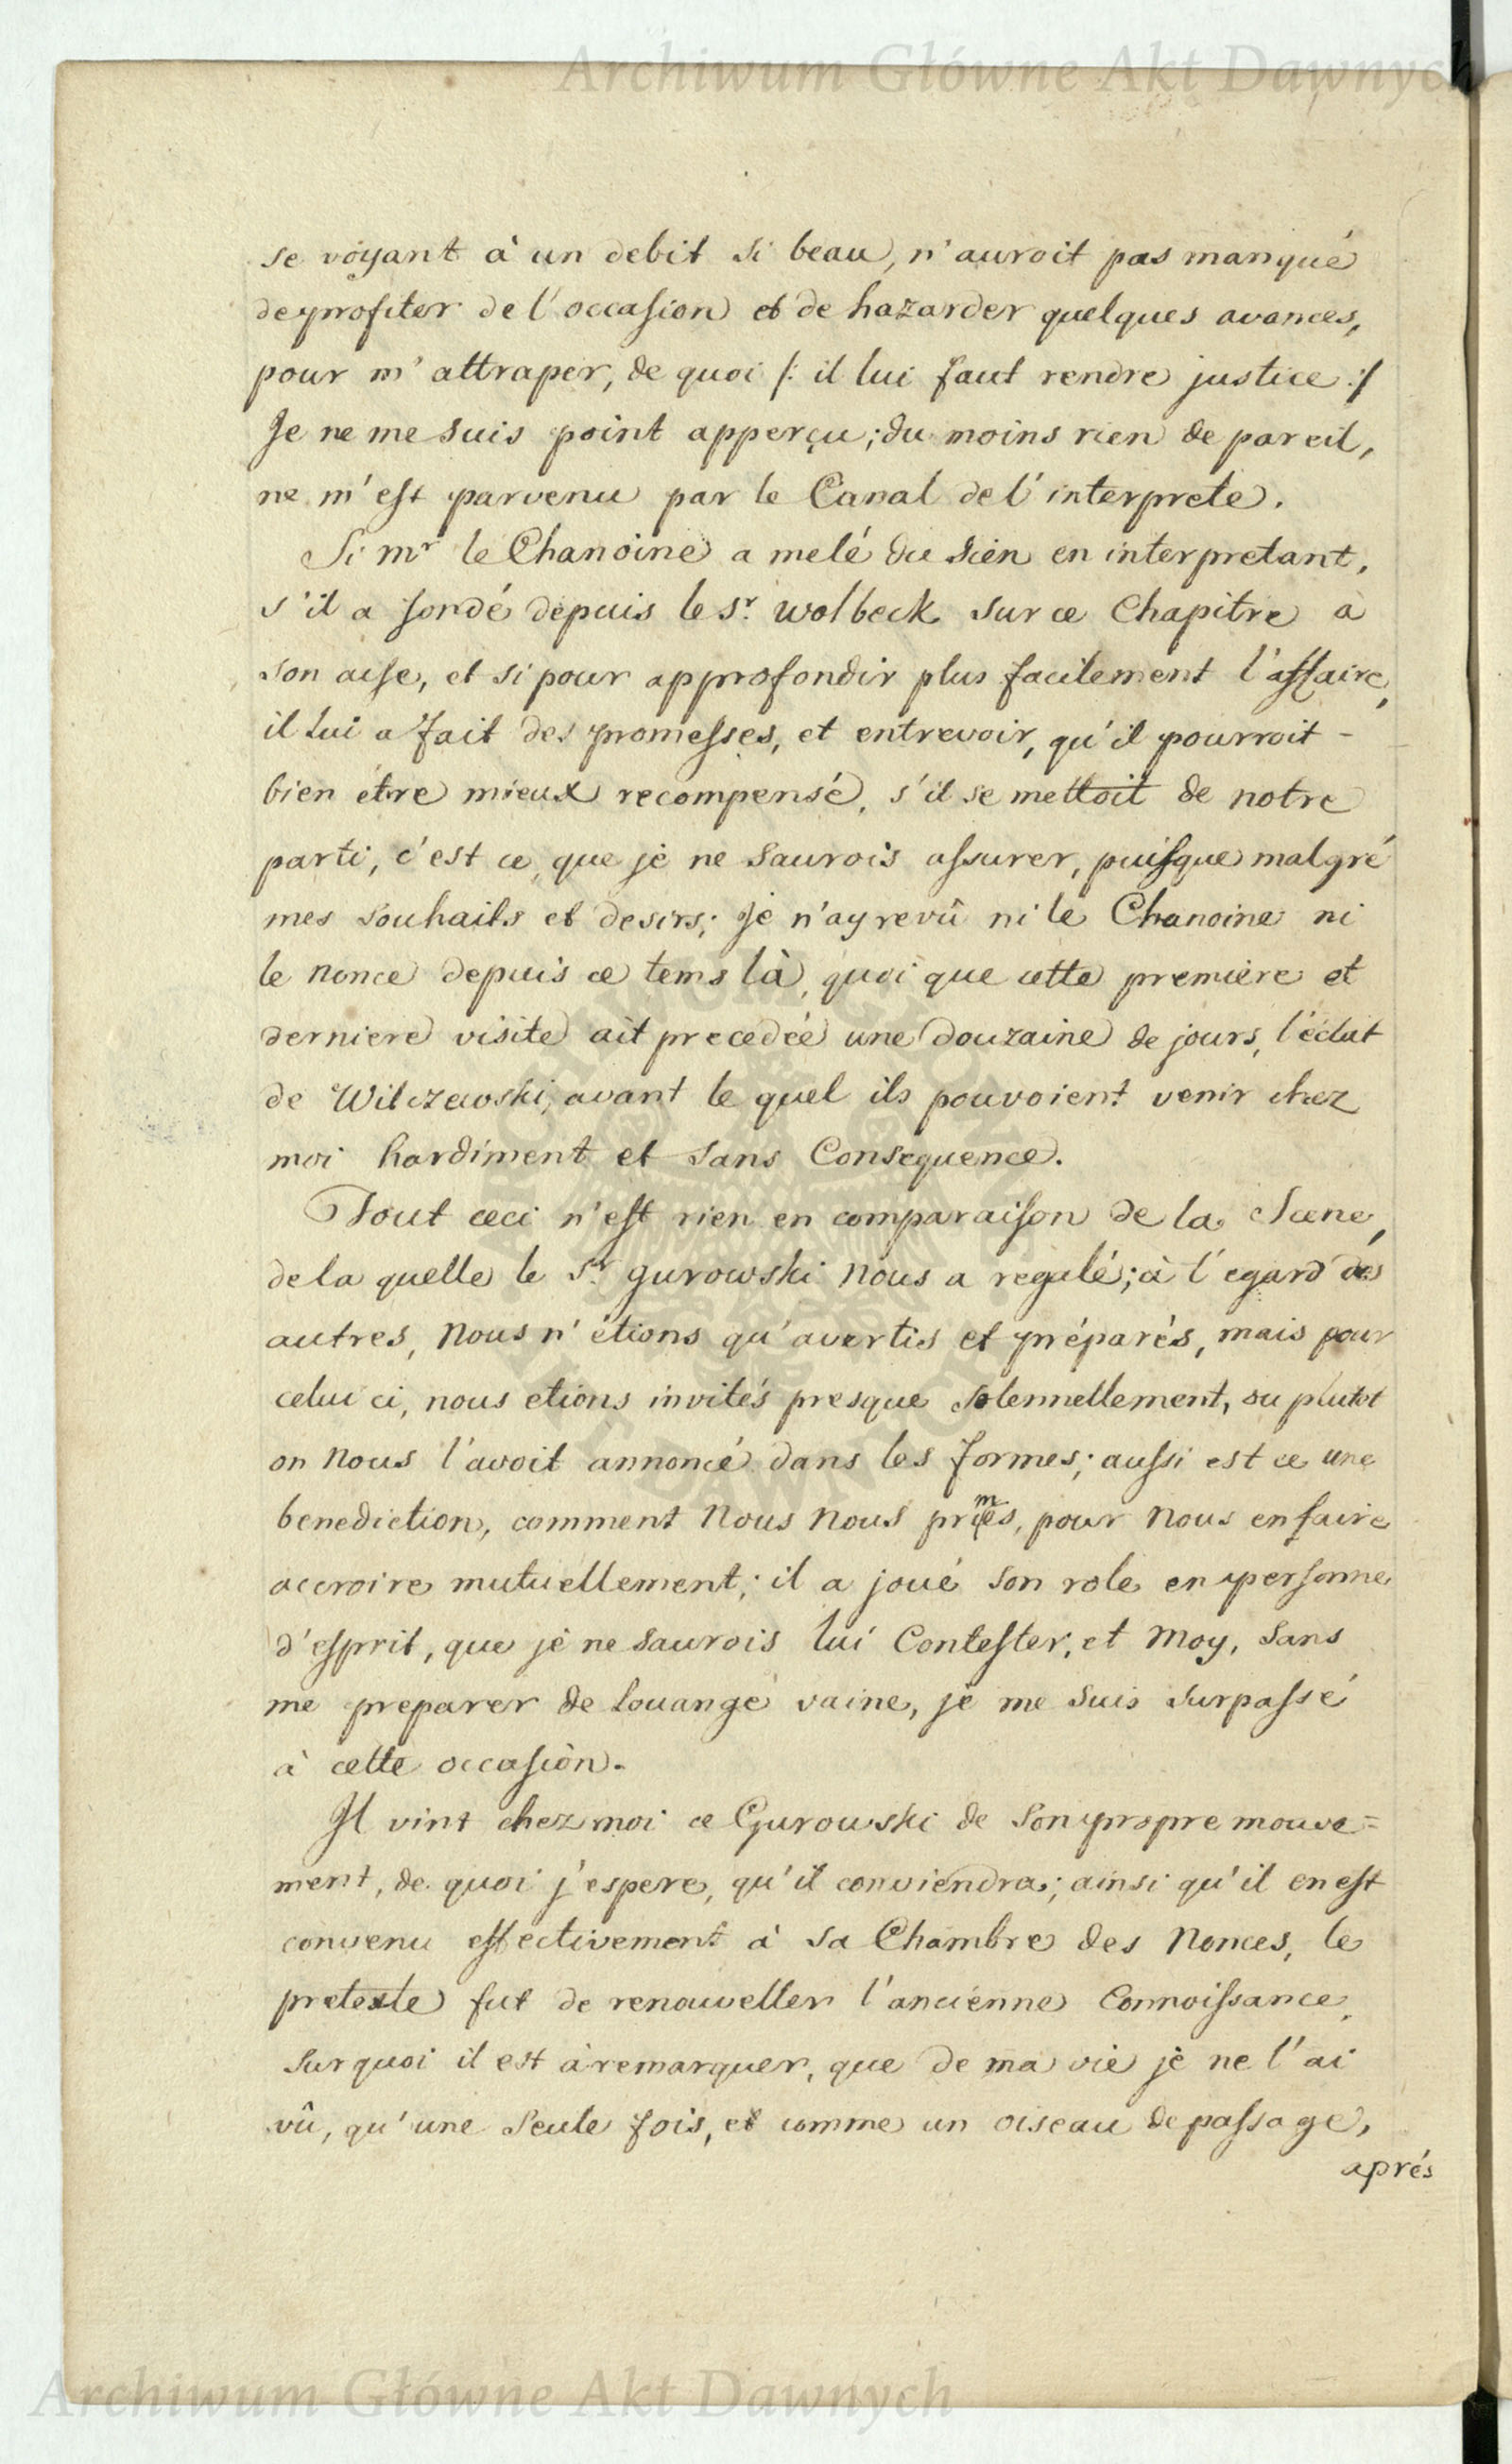 Archiwum Główne Akt Dawnych
se voyant à un debit si beau, n'auroit pas manqué
de profiter de l'occasion et de hazarder quelques avances,
pour m'attraper, de quoi /: il lui faut rendre justice :/
Je ne me suis point apperçu; du moins rien de pareil,
ne m'est parvenu par le Canal de l'interprete.
Si mr le Chanoine a melé du sien en interpretant,
s'il a sondé depuis le Sr. Wolbeck sur ce Chapitre à
son aise, et si pour approfondir plus facilement l'affaire,
il lui a fait des promesses, et entrevoir, qu'il pourroit -
bien être mieux recompensé, s'il se mettoit de notre
parti, c'est ce, que je ne saurois assurer, puisque malgré
mes souhaits et desirs; je n'ay revû ni le Chanoine ni
le nonce depuis ce tems là, quoi que cette première et
derniere visite ait precedée une douzaine de jours, l'éclat
de Wilczewski, avant le quel ils pouvoient venir chez
moi hardiment et sans Consequence.
Tout ceci n'est rien en comparaison de la Scene,
de la quelle le Sr. Gurowski nous a regalé; à l'egard des
autres, nous n'étions qu'avertis et préparés, mais pour
celui ci, nous etions invités presque solennellement, ou plutot
on nous l'avoit annoncé dans les formes; aussi est ce une
benediction, comment nous nous primes, pour nous en faire
accroire mutuellement; il a joué son role en personne
d'esprit, que je ne saurois lui Contester, et moy, sans
me preparer de louange vaine, je me suis surpassé
à cette occasion.
Il vint chez moi ce Gurowski de son propre mouve=
ment, de quoi j'espere, qu'il conviendra; ainsi qu'il en est
convenu effectivement à sa Chambre des Nonces, le
pretexte fut de renouveller l'ancienne Connoissance,
sur quoi il est à remarquer, que de ma vie je ne l'ai
vû, qu'une seule fois, et comme un oiseau de passage,
aprés
Archiwum Główne Akt Dawnych